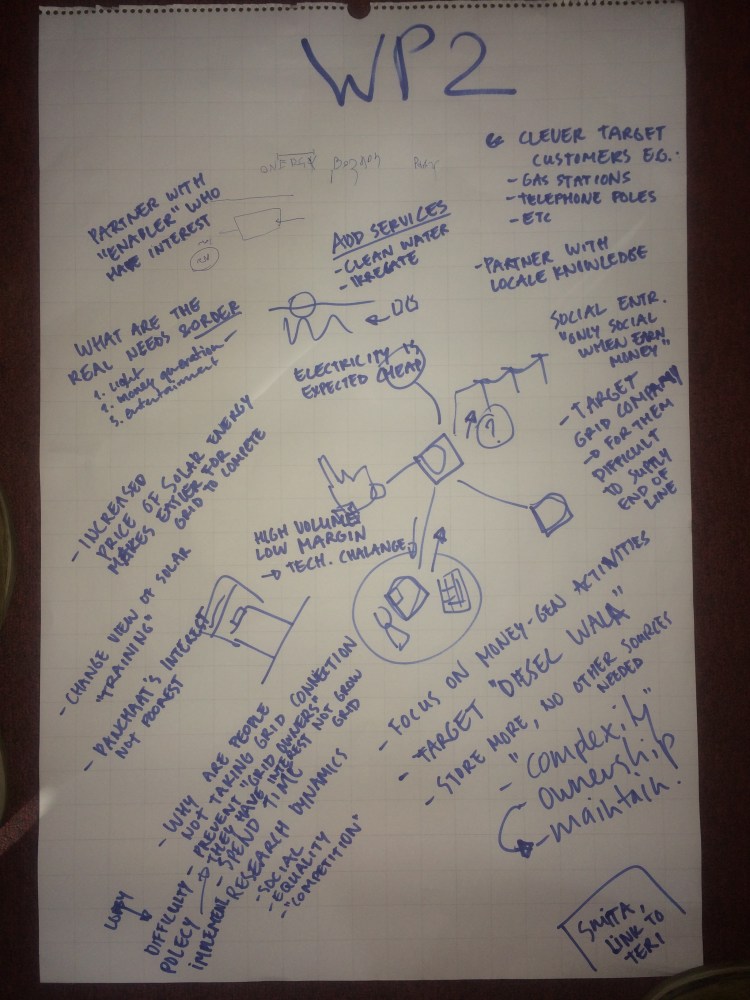 WP2
CLEVER TARGET
CUSTOMERS EG.
- GAS STATIONS
- TELEPHONE POLES
- ETC
PARTNER WITH
"ENABLER" WHO
HAVE INTEREST
ADD SERVICES
- CLEAN WATER
- IRREGATE
- PARTNER WITH
LOCALE KNOWLEDGE
WHAT ARE THE
REAL NEEDS & ORDER
1. Light
2. money generation
3. entertainment
SOCIAL ENTR.
"ONLY SOCIAL
WHEN EARN
MONEY"
ELECTRICITY IS
EXPECTED CHEAP
?
- TARGET
GRID COMPANY
→ FOR THEM
DIFFICULT
TO SUPPLY
END OF
LINE
- INCREASED
PRICE OF SOLAR ENERGY
MAKES EATIER FOR
GRID TO COMPETE
HIGH VOLUME
LOW MARGIN
→ TECH. CHALANGE
- CHANGE VIEW OF SOLAR
"TRAINING"
- PANCHAAT'S INTEREST
NOT POOREST
- FOCUS ON MONEY-GEN ACTIVITIES
- TARGET "DIESEL WALA"
- STORE MORE, NO OTHER SOURCES
NEEDED
- "complexity"
ownership
- maintain.
- WHY ARE PEOPLE
NOT TAKING GRID CONNECTION
- PREVENT "GRID OWNERS"
→ THEY HAVE INTEREST NOT GROW
GRID
- SPEND TIME
RESEARCH DYNAMICS
- SOCIAL
- EQUALITY
- "COMPETITION"
LOBBY
DIFFICULTY
POLECY
IMPLEMENT
SMITA,
LINK TO
TERI